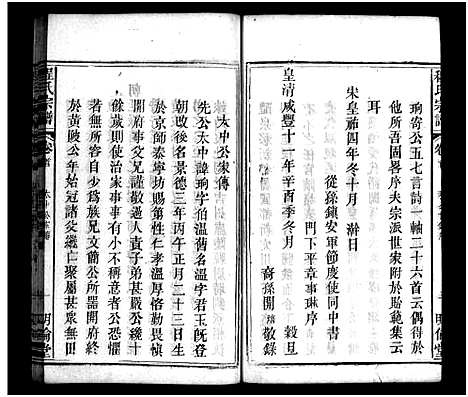 珦寄公五七言詩一軸二十六首云偶得於
他所吾固畧序夫宗派世家附於貽範集云
耳
宋皇祐四年冬十月 澣日
從孫鎮安軍節度使同中書
門下平章事琳序
穀旦
皇清咸豐十一年辛酉季冬月
裔孫開 敬錄
明倫堂
程氏宗譜
卷首
太中公家傳
先公太中諱珦字伯溫舊名溫字君玉旣登
朝改後名景德三年丙午正月二十三日生
於京師泰寧坊賜第性仁孝溫厚恪勤
開府事父兄謹敬過人責子弟甚嚴公纔十
餘歲則使治家事事有小不稱意者公恐懼
若無所容自少爲族兄文簡公所器開府終
於黃陂公年始冠諸父繼亡聚屬甚衆無田
明倫堂